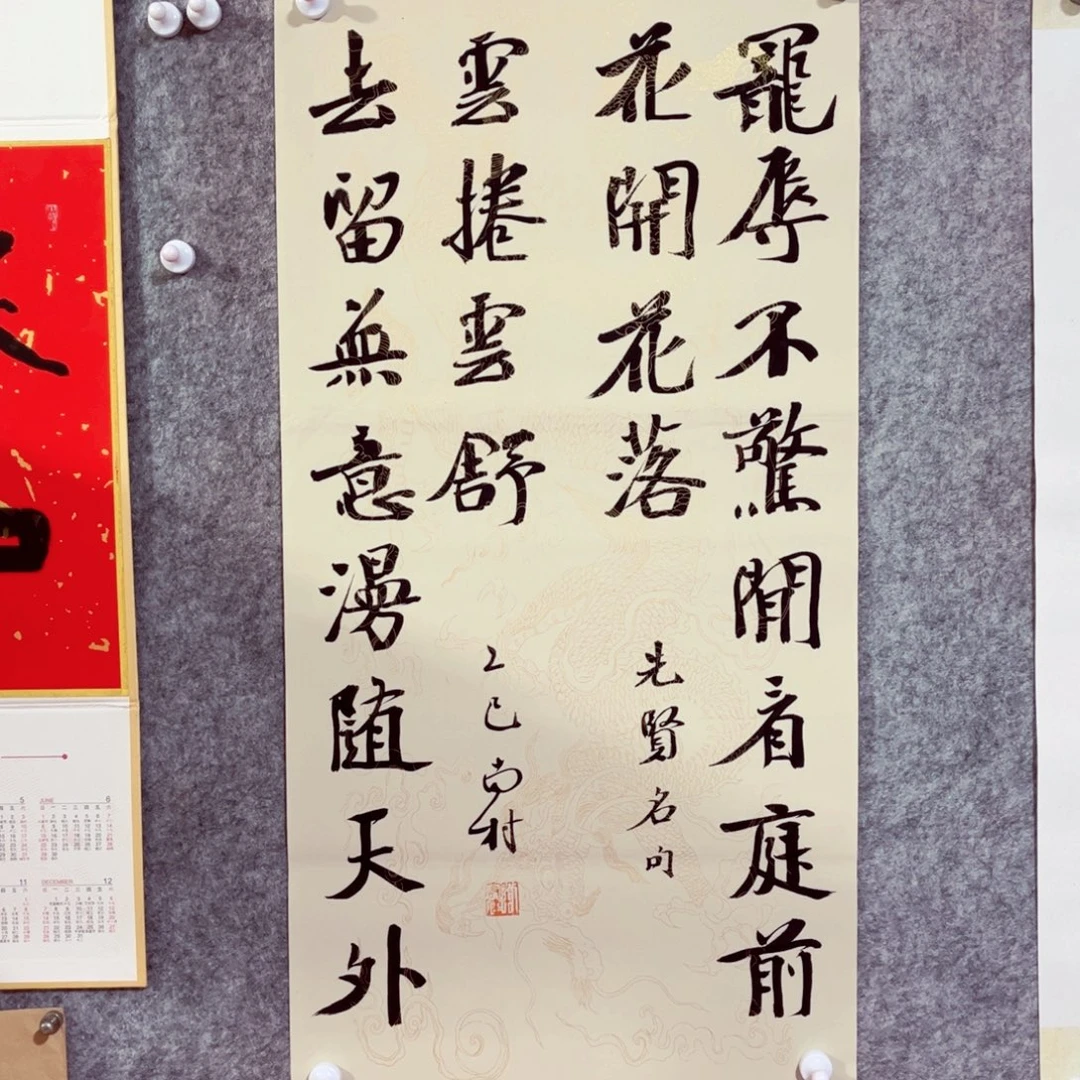 寵辱不驚閒看庭前
花開花落
先賢名句
去留無意漫随天外
雲捲雲舒
乙巳尚村
5
JUNE 6
11
DECEMBER 12